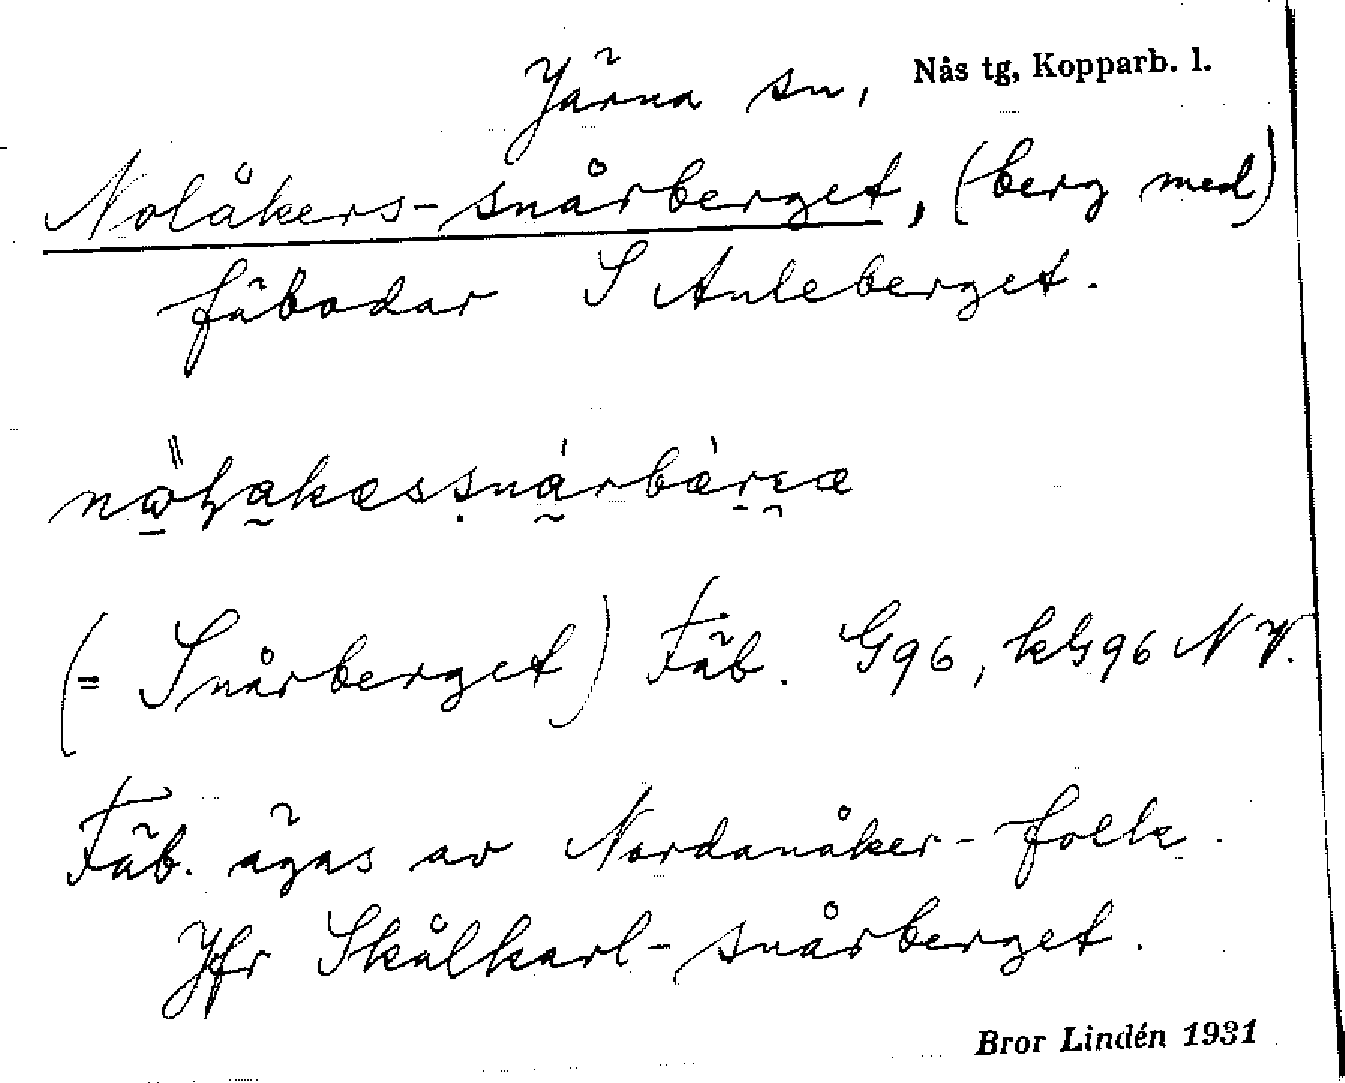 Järna sn, Nås tg, Kopparb. l.
Nolåkers-snårberget, (berg med)
fäbodar S Anleberget.
(= Snårberget) Fäb. G96, kG96 NV.
Fäb. ägas av Nordanåker-folk.
Jfr Skålkarl-snårberget.
Bror Lindén 1931